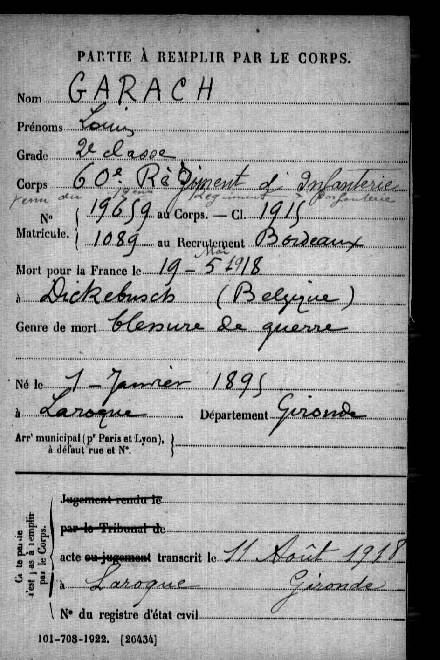 PARTIE À REMPLIR PAR LE CORPS.
Nom GARACH
Prénoms Louis
Grade 2e classe
Corps 60e Régiment d'Infanterie
venu du Régiment Infanterie
N° 19659 au Corps. — Cl. 1915
Matricule. 1089 au Recrutement Bordeaux
Mort pour la France le 19 - 5 Mai 1918
à Dickebusch (Belgique)
Genre de mort blessure de guerre
Né le 1 - Janvier 1895
à Laroque Département Gironde
Arrt municipal (pr Paris et Lyon),
à défaut rue et N°.
Jugement rendu le
par le Tribunal de
acte ou jugement transcrit le 11 Août 1918
à Laroque Gironde
N° du registre d'état civil
Cette partie
n'est pas à remplir
par le Corps.
101-708-1922. [26434]